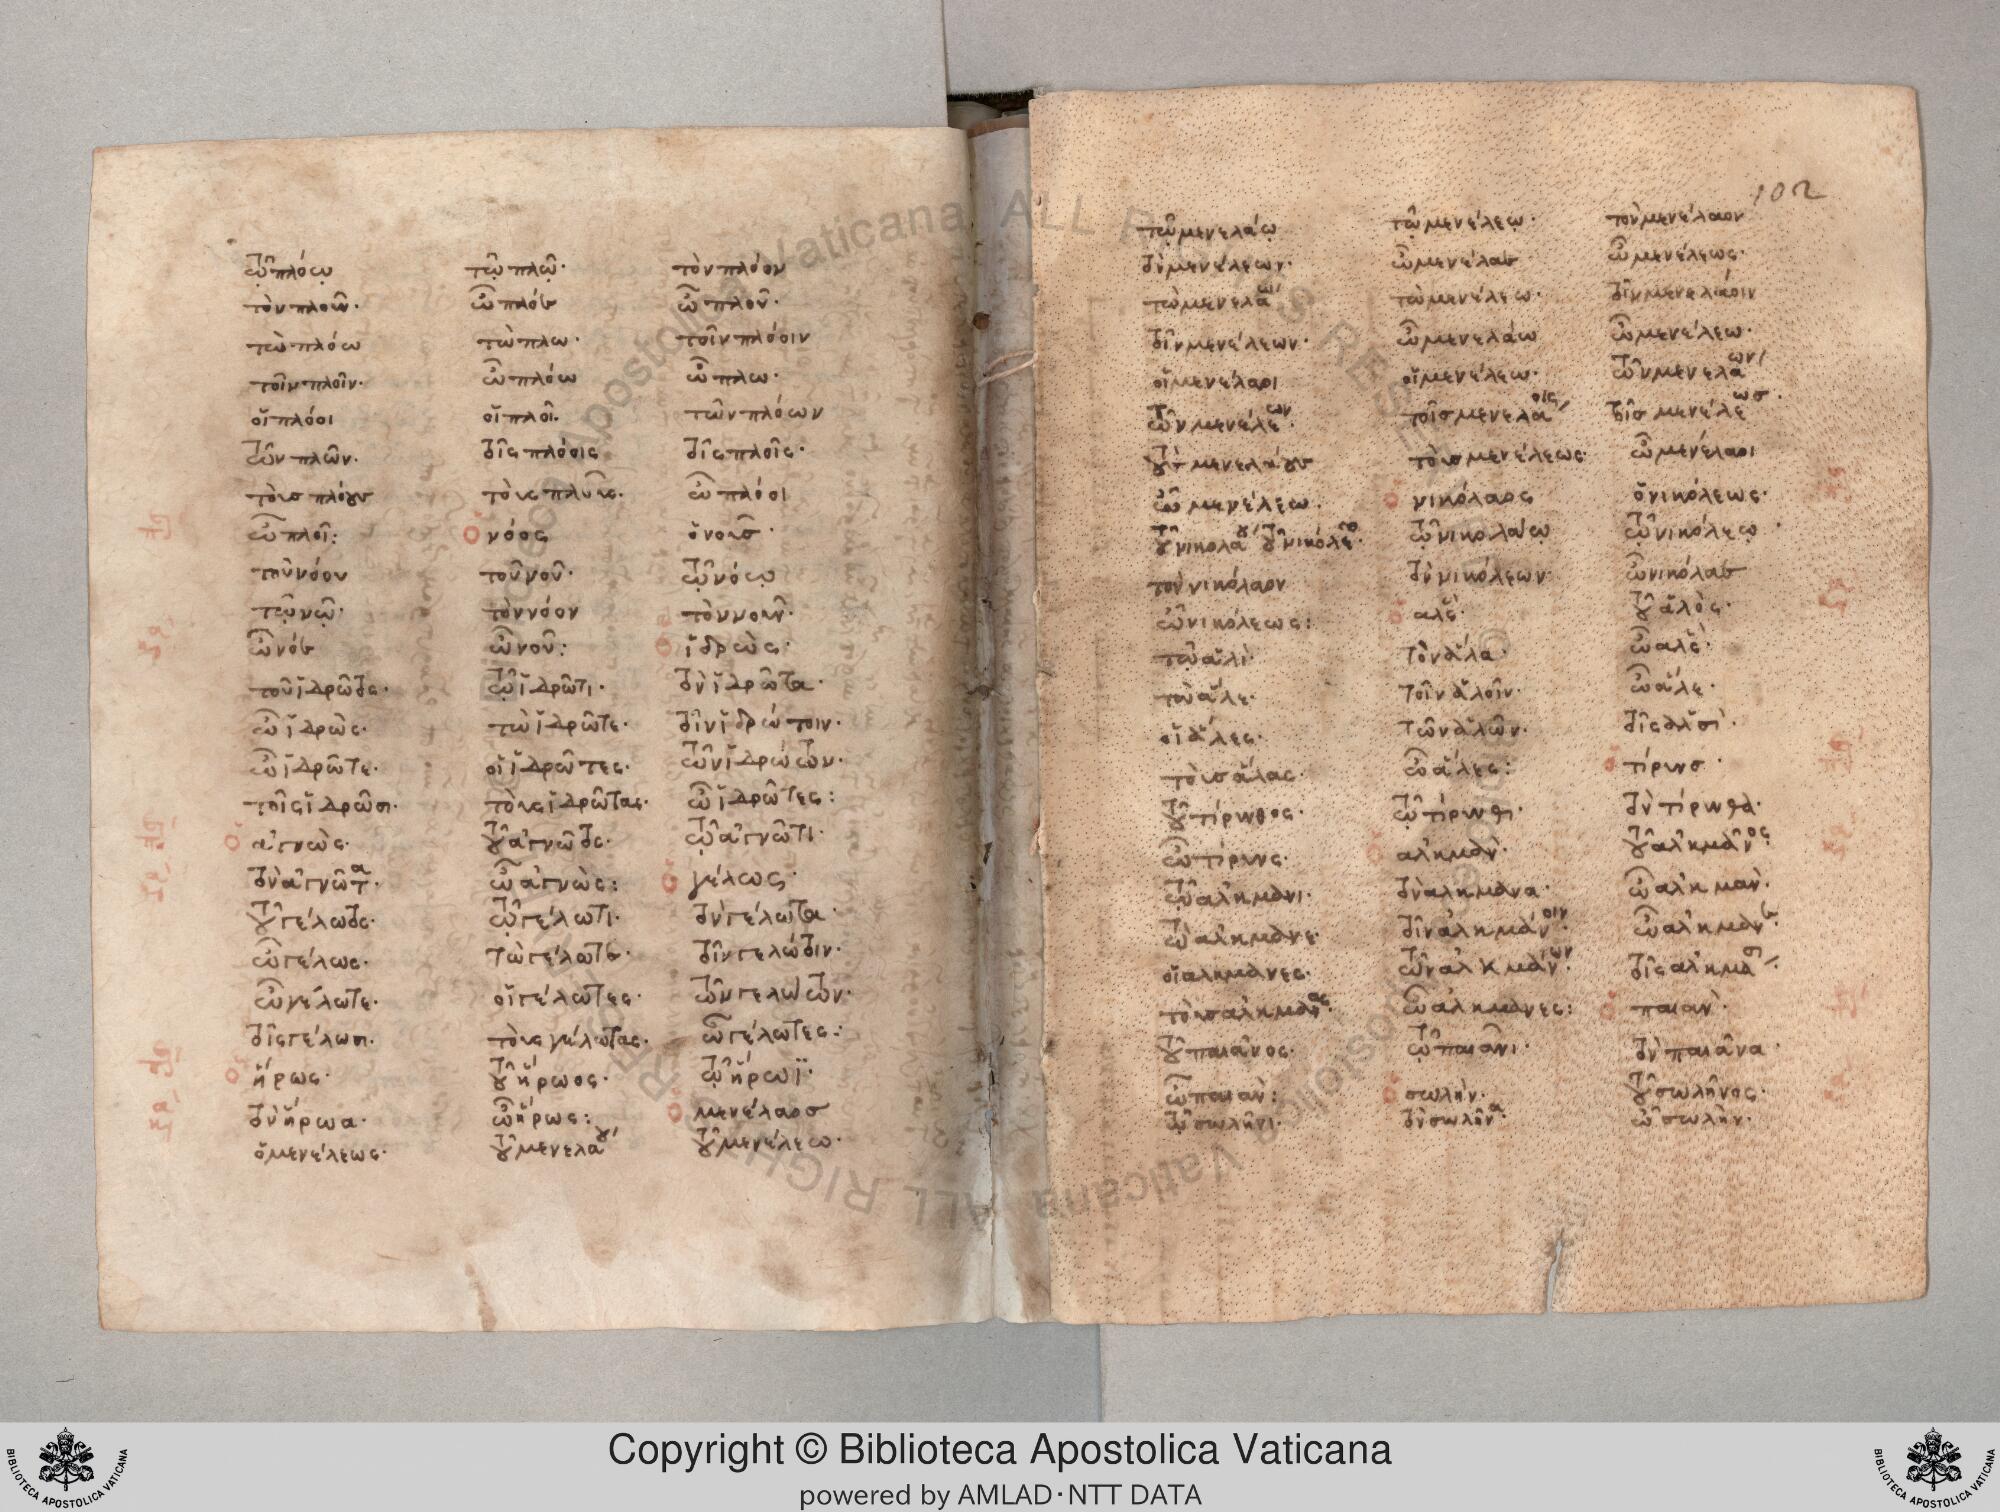 τῷ πλόῳ τῷ πλῷ· τὸν πλόον
τὸν πλοῦν· ὦ πλόε ὦ πλοῦ·
τὼ πλόω τὼ πλω· τοῖν πλόοιν
τοῖν πλοῖν· ὦ πλόω ὦ πλω·
οἱ πλόοι οἱ πλοῖ· τῶν πλόων
τῶν πλῶν· τοῖς πλόοις τοῖς πλοῖς·
τοὺς πλόους τοὺς πλοῦς· ὦ πλόοι
ὦ πλοῖ: ὁ νόος ὁ νοῦς·
τοῦ νόου τοῦ νοῦ· τῷ νόῳ
τῷ νῷ· τὸν νόον τὸν νοῦν·
ὦ νόε ὦ νοῦ: ὁ ἱδρώς·
τοῦ ἱδρῶτος· τῷ ἱδρῶτι· τὸν ἱδρῶτα·
ὦ ἱδρὼς· τὼ ἱδρῶτε· τοῖν ἱδρώτοιν·
ὦ ἱδρῶτε· οἱ ἱδρῶτες· τῶν ἱδρώτων·
τοῖς ἱδρῶσι· τοὺς ἱδρῶτας· ὦ ἱδρῶτες:
ὁ ἀγνὼς· τοῦ ἀγνῶτος· τῷ ἀγνῶτι·
τὸν ἀγνῶτα· ὦ ἀγνὼς: ὁ γέλως·
τοῦ γέλωτος· τῷ γέλωτι· τὸν γέλωτα·
ὦ γέλως· τὼ γέλωτε· τοῖν γελώτοιν·
ὦ γέλωτε· οἱ γέλωτες· τῶν γελώτων·
τοῖς γέλωσι· τοὺς γέλωτας· ὦ γέλωτες:
ὁ ἥρως· τοῦ ἥρωος· τῷ ἥρωϊ·
τὸν ἥρωα· ὦ ἥρως: ὁ μενέλαος
ὁ μενέλεως· τοῦ μενελάου τοῦ μενέλεω·
102
τῷ μενελάῳ τῷ μενέλεῳ· τὸν μενέλαον
τὸν μενέλεων· ὦ μενέλαε ὦ μενέλεως·
τὼ μενελάω τὼ μενέλεω· τοῖν μενελάοιν
τοῖν μενέλεων· ὦ μενελάω ὦ μενέλεω·
οἱ μενέλαοι οἱ μενέλεω· τῶν μενελάων
τῶν μενέλεων· τοῖς μενελάοις τοῖς μενέλεως·
τοὺς μενελάους τοὺς μενέλεως· ὦ μενέλαοι
ὦ μενέλεω· ὁ νικόλαος ὁ νικόλεως·
τοῦ νικολάου τοῦ νικόλεω· τῷ νικολάῳ τῷ νικόλεῳ·
τὸν νικόλαον τὸν νικόλεων· ὦ νικόλαε
ὦ νικόλεως: ὁ ἅλς· τοῦ ἁλὸς·
τῷ ἁλὶ· τὸν ἅλα· ὦ ἅλς·
τὼ ἅλε· τοῖν ἁλοῖν· ὦ ἅλε·
οἱ ἅλες· τῶν ἁλῶν· τοῖς ἁλσὶ·
τοὺς ἅλας· ὦ ἅλες: ὁ τίρυνς·
τοῦ τίρυνθος· τῷ τίρυνθι· τὸν τίρυνθα·
ὦ τίρυνς· ὁ ἀλκμὰν· τοῦ ἀλκμᾶνος·
τῷ ἀλκμᾶνι· τὸν ἀλκμᾶνα· ὦ ἀλκμὰν·
τὼ ἀλκμᾶνε· τοῖν ἀλκμάνοιν· ὦ ἀλκμᾶνε·
οἱ ἀλκμᾶνες· τῶν ἀλκμάνων· τοῖς ἀλκμᾶσι·
τοὺς ἀλκμᾶνας· ὦ ἀλκμᾶνες: ὁ παιὰν·
τοῦ παιᾶνος· τῷ παιᾶνι· τὸν παιᾶνα·
ὦ παιὰν: ὁ σωλὴν· τοῦ σωλῆνος·
τῷ σωλῆνι· τὸν σωλῆνα· ὦ σωλὴν·
Copyright © Biblioteca Apostolica Vaticana
powered by AMLAD·NTT DATA
BIBLIOTECA APOSTOLICA VATICANA
BIBLIOTECA APOSTOLICA VATICANA